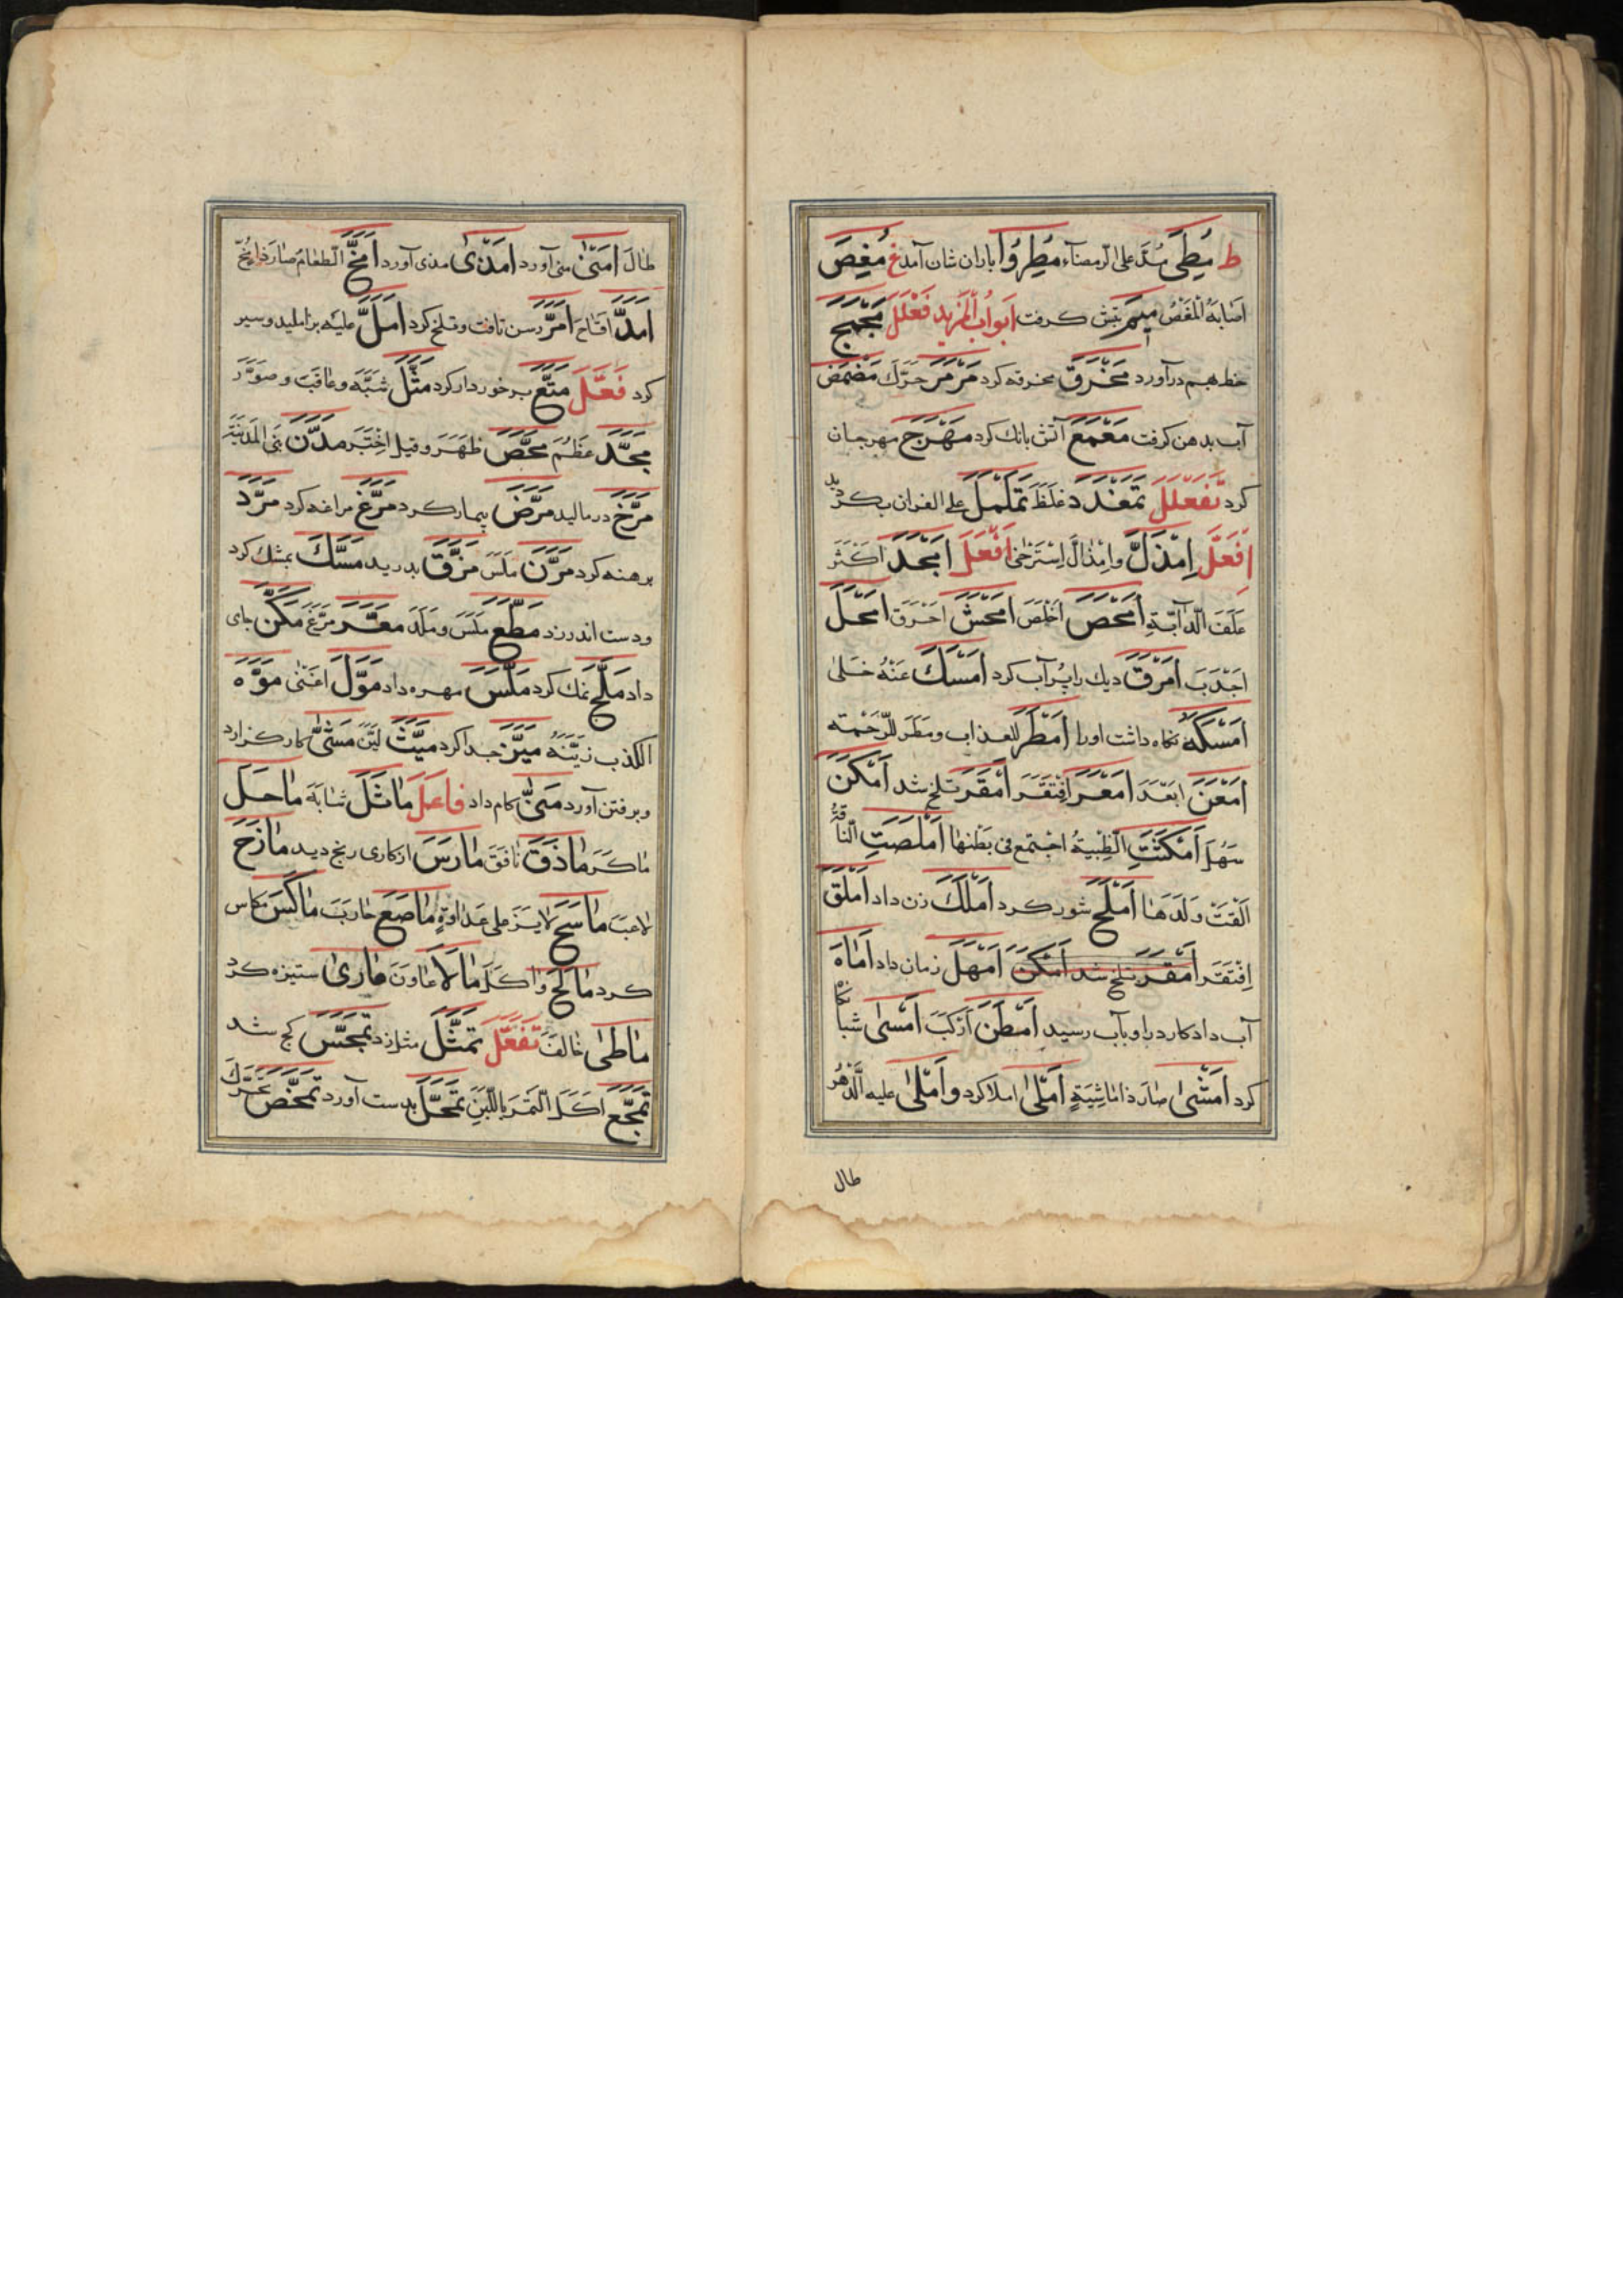 ط مُطِىَ مُدَّ على الرمضآء مُطِرُوا باران شان آمد غ مُغِصَ
اَصَابَهُ المَغَصُ تبش كرفت ابوابُ المَزيد فَعْلَلَ مَجْمَجَ
خط بهم درآورد مَخْرَقَ مخرقه كرد مَرْمَرَ حرّك مَضْمَضَ
آب بدهن كرفت مَعْمَعَ آتش بانك كرد مَهْرَجَ مهرجان
كرد تَفَعْلَلَ تَمَعْدَدَ غلظ تَمَلْمَلَ على الفراش
اِفْعَلَّ اِمْذَلَّ وامْذَالَّ اِسْتَرْخى اَفْعَلَ اَمْجَدَ اَكْثَرَ
عَلَفَ الدّآبّةِ اَمْحَصَ اَخْلَصَ اَمْحَشَ اَحْرَقَ اَمْحَلَ
اَجْدَبَ اَمْرَقَ ديك را پُر آب كرد اَمْسَكَ عَنْهُ خَلى
اَمْسَكَهُ نكاه داشت اورا اَمْطَرَ للعذاب ومَطَرَ للرّحمة
اَمْعَنَ اَبْعَدَ اَمْعَرَ اِفْتَقَرَ اَمْقَرَ تلخ شد اَمْكَنَ
سَهُلَ اَمْكَنَتِ الظبية اجتمع فى بَطنها اَمْلَصَتِ النّاقةُ
اَلْقَتْ وَلَدَهَا اَمْلَحَ شور كرد اَمْلَكَ زن داد اَمْلَقَ
اِفْتَقَرَ اَمْقَرَ تلخ شد اَمْكَنَ اَمْهَلَ زمان داد اَمَاهَ
آب داد كارد را وبآب رسيد اَمْطَنَ اَرْكَبَ اَمْسى شبانكا
كرد اَمْشى صَارَ ذا مَاشِيَةٍ اَمْلى املا كرد واَمْلى عليه الدّهْر
طال
طالَ اَمْنى منى آورد اَمْذى مذى آورد اَمَخَّ الطعامُ صارَ ذا مُخّ
اَمَدَّ اَمَرَّ رسن تافت وتلخ كرد اَمَلَّ عليه براملید وسير
كرد فَعَّلَ مَتَّعَ برخوردار كرد مَثَّلَ شَبَّهَ وعاقَبَ وصوّر
مَجَّدَ عَظَّمَ مَحَّصَ ظَهَّرَ وقيل اِخْتَبَرَ مَدَّنَ بَنى المَدينَةَ
مَرَّخَ درماليد مَرَّضَ بيمار كرد مَرَّغَ مراغه كرد مَرَّدَ
برهنه كرد مَرَّنَ مَلَّسَ مَزَّقَ بدريد مَسَّكَ بمشك كرد
ودست اندرزد مَطَّعَ مَلَّسَ ومَلَّدَ مَعَّرَ مَرَّغَ مَكَّنَ جاى
داد مَلَّحَ نمك كرد مَلَّسَ مهره داد مَوَّلَ اَغْنى مَوَّهَ
الكذب زيّنَهُ مَيَّزَ جدا كرد مَيَّثَ لَيَّنَ مَشّى كار كزارد
وبرفتن آورد مَنّى كام داد فاعَلَ مَاثَلَ شابَهَ مَاحَلَ
مَاكَرَ مَاذَقَ نافَقَ مَارَسَ از كارى رنج ديد مَازَحَ
لاعَبَ مَاسَحَ مَاصَعَ حارَبَ مَاكَسَ مكاس
كرد مَالَحَ واكَلَ مَالَا عاوَنَ مَارى ستيزه كرد
مَاطى خالَفَ تَفَعَّلَ تَمَثَّلَ مثل زد تَمَجَّسَ كج شد
تَمَجَّعَ اَكَلَ التمرَ باللّبَنِ تَمَحَّلَ بدست آورد تَمَخَّضَ تحرّك